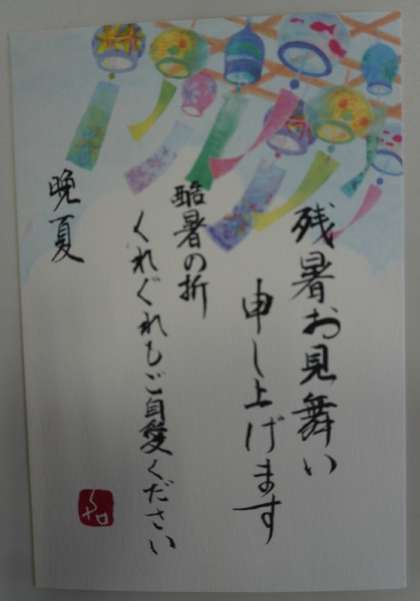 残暑お見舞い
申し上げます
酷暑の折
くれぐれもご自愛ください
晩夏